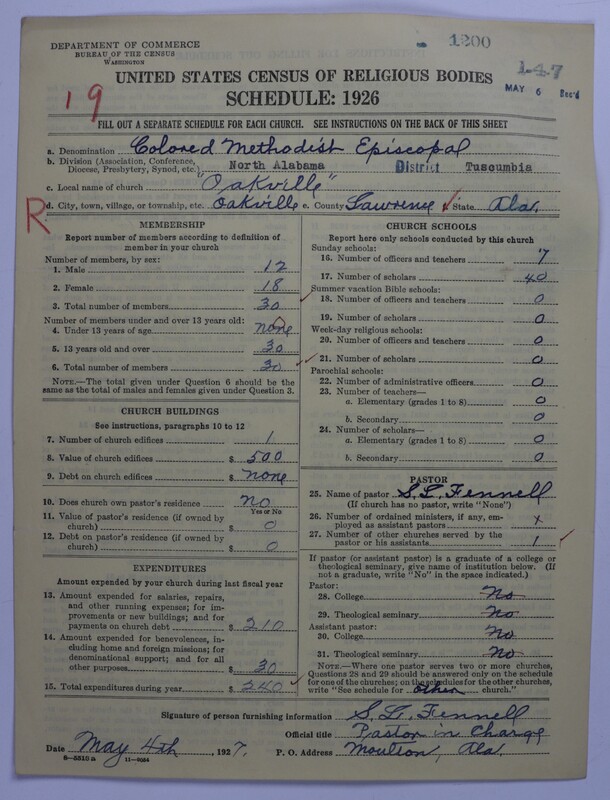 DEPARTMENT OF COMMERCE
BUREAU OF THE CENSUS
WASHINGTON
1200
147
MAY 6 Rec'd
19
UNITED STATES CENSUS OF RELIGIOUS BODIES
SCHEDULE: 1926
FILL OUT A SEPARATE SCHEDULE FOR EACH CHURCH. SEE INSTRUCTIONS ON THE BACK OF THIS SHEET
a. Denomination Colored Methodist Episcopal
b. Division (Association, Conference, Diocese, Presbytery, Synod, etc.) North Alabama District Tuscumbia
c. Local name of church "Oakville"
R
d. City, town, village, or township, etc. Oakville e. County Lawrence State Ala.
MEMBERSHIP
Report number of members according to definition of
member in your church
Number of members, by sex:
1. Male 12
2. Female 18
3. Total number of members 30
Number of members under and over 13 years old:
4. Under 13 years of age none
5. 13 years old and over 30
6. Total number of members 30
NOTE.—The total given under Question 6 should be the
same as the total of males and females given under Question 3.
CHURCH BUILDINGS
See instructions, paragraphs 10 to 12
7. Number of church edifices 1
8. Value of church edifices $ 500
9. Debt on church edifices $ none
10. Does church own pastor's residence No
Yes or No
11. Value of pastor's residence (if owned by
church) $ 0
12. Debt on pastor's residence (if owned by
church) $ 0
EXPENDITURES
Amount expended by your church during last fiscal year
13. Amount expended for salaries, repairs,
and other running expenses; for im-
provements or new buildings; and for
payments on church debt $ 210
14. Amount expended for benevolences, in-
cluding home and foreign missions; for
denominational support; and for all
other purposes $ 30
15. Total expenditures during year $ 240
CHURCH SCHOOLS
Report here only schools conducted by this church
Sunday schools:
16. Number of officers and teachers 7
17. Number of scholars 40
Summer vacation Bible schools:
18. Number of officers and teachers 0
19. Number of scholars 0
Week-day religious schools:
20. Number of officers and teachers 0
21. Number of scholars 0
Parochial schools:
22. Number of administrative officers 0
23. Number of teachers—
a. Elementary (grades 1 to 8) 0
b. Secondary 0
24. Number of scholars—
a. Elementary (grades 1 to 8) 0
b. Secondary 0
PASTOR
25. Name of pastor S. L. Fennell
(If church has no pastor, write "None")
26. Number of ordained ministers, if any, em-
ployed as assistant pastors x
27. Number of other churches served by the
pastor or his assistants 1
If pastor (or assistant pastor) is a graduate of a college or
theological seminary, give name of institution below. (If
not a graduate, write "No" in the space indicated.)
Pastor:
28. College No
29. Theological seminary No
Assistant pastor:
30. College No
31. Theological seminary No
NOTE.—Where one pastor serves two or more churches,
Questions 28 and 29 should be answered only on the schedule
for one of the churches; on the schedules for the other churches,
write "See schedule for other church."
Signature of person furnishing information S. L. Fennell
Official title Pastor in Charge
Date May 4th, 1927. P. O. Address Moulton, Ala.
8—5510 a 11—9884